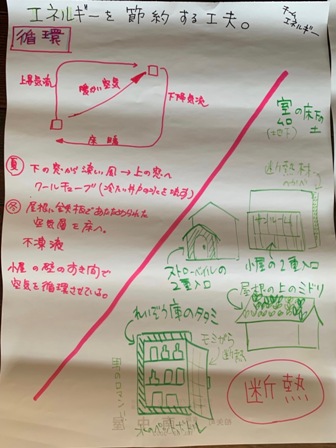 エネルギーを節約する工夫。
チーム
エネルギー
循環
上昇気流
暖かい空気
下降気流
床暖
夏 下の窓から涼しい風→上の窓へ
クールチューブ(冷たい井戸水を流す)
冬 屋根に鉄板であたためられた
空気層を床へ。
不凍液
小屋の壁のすき間で
空気を循環させている。
室の床下の
ムロ
(地下)
土
断熱材
ストローベイルの
2重入口
小屋の2重入口
屋根の上のミドリ
れいぞう庫のタタミ
モミガラ
断熱
男のロマン
断熱